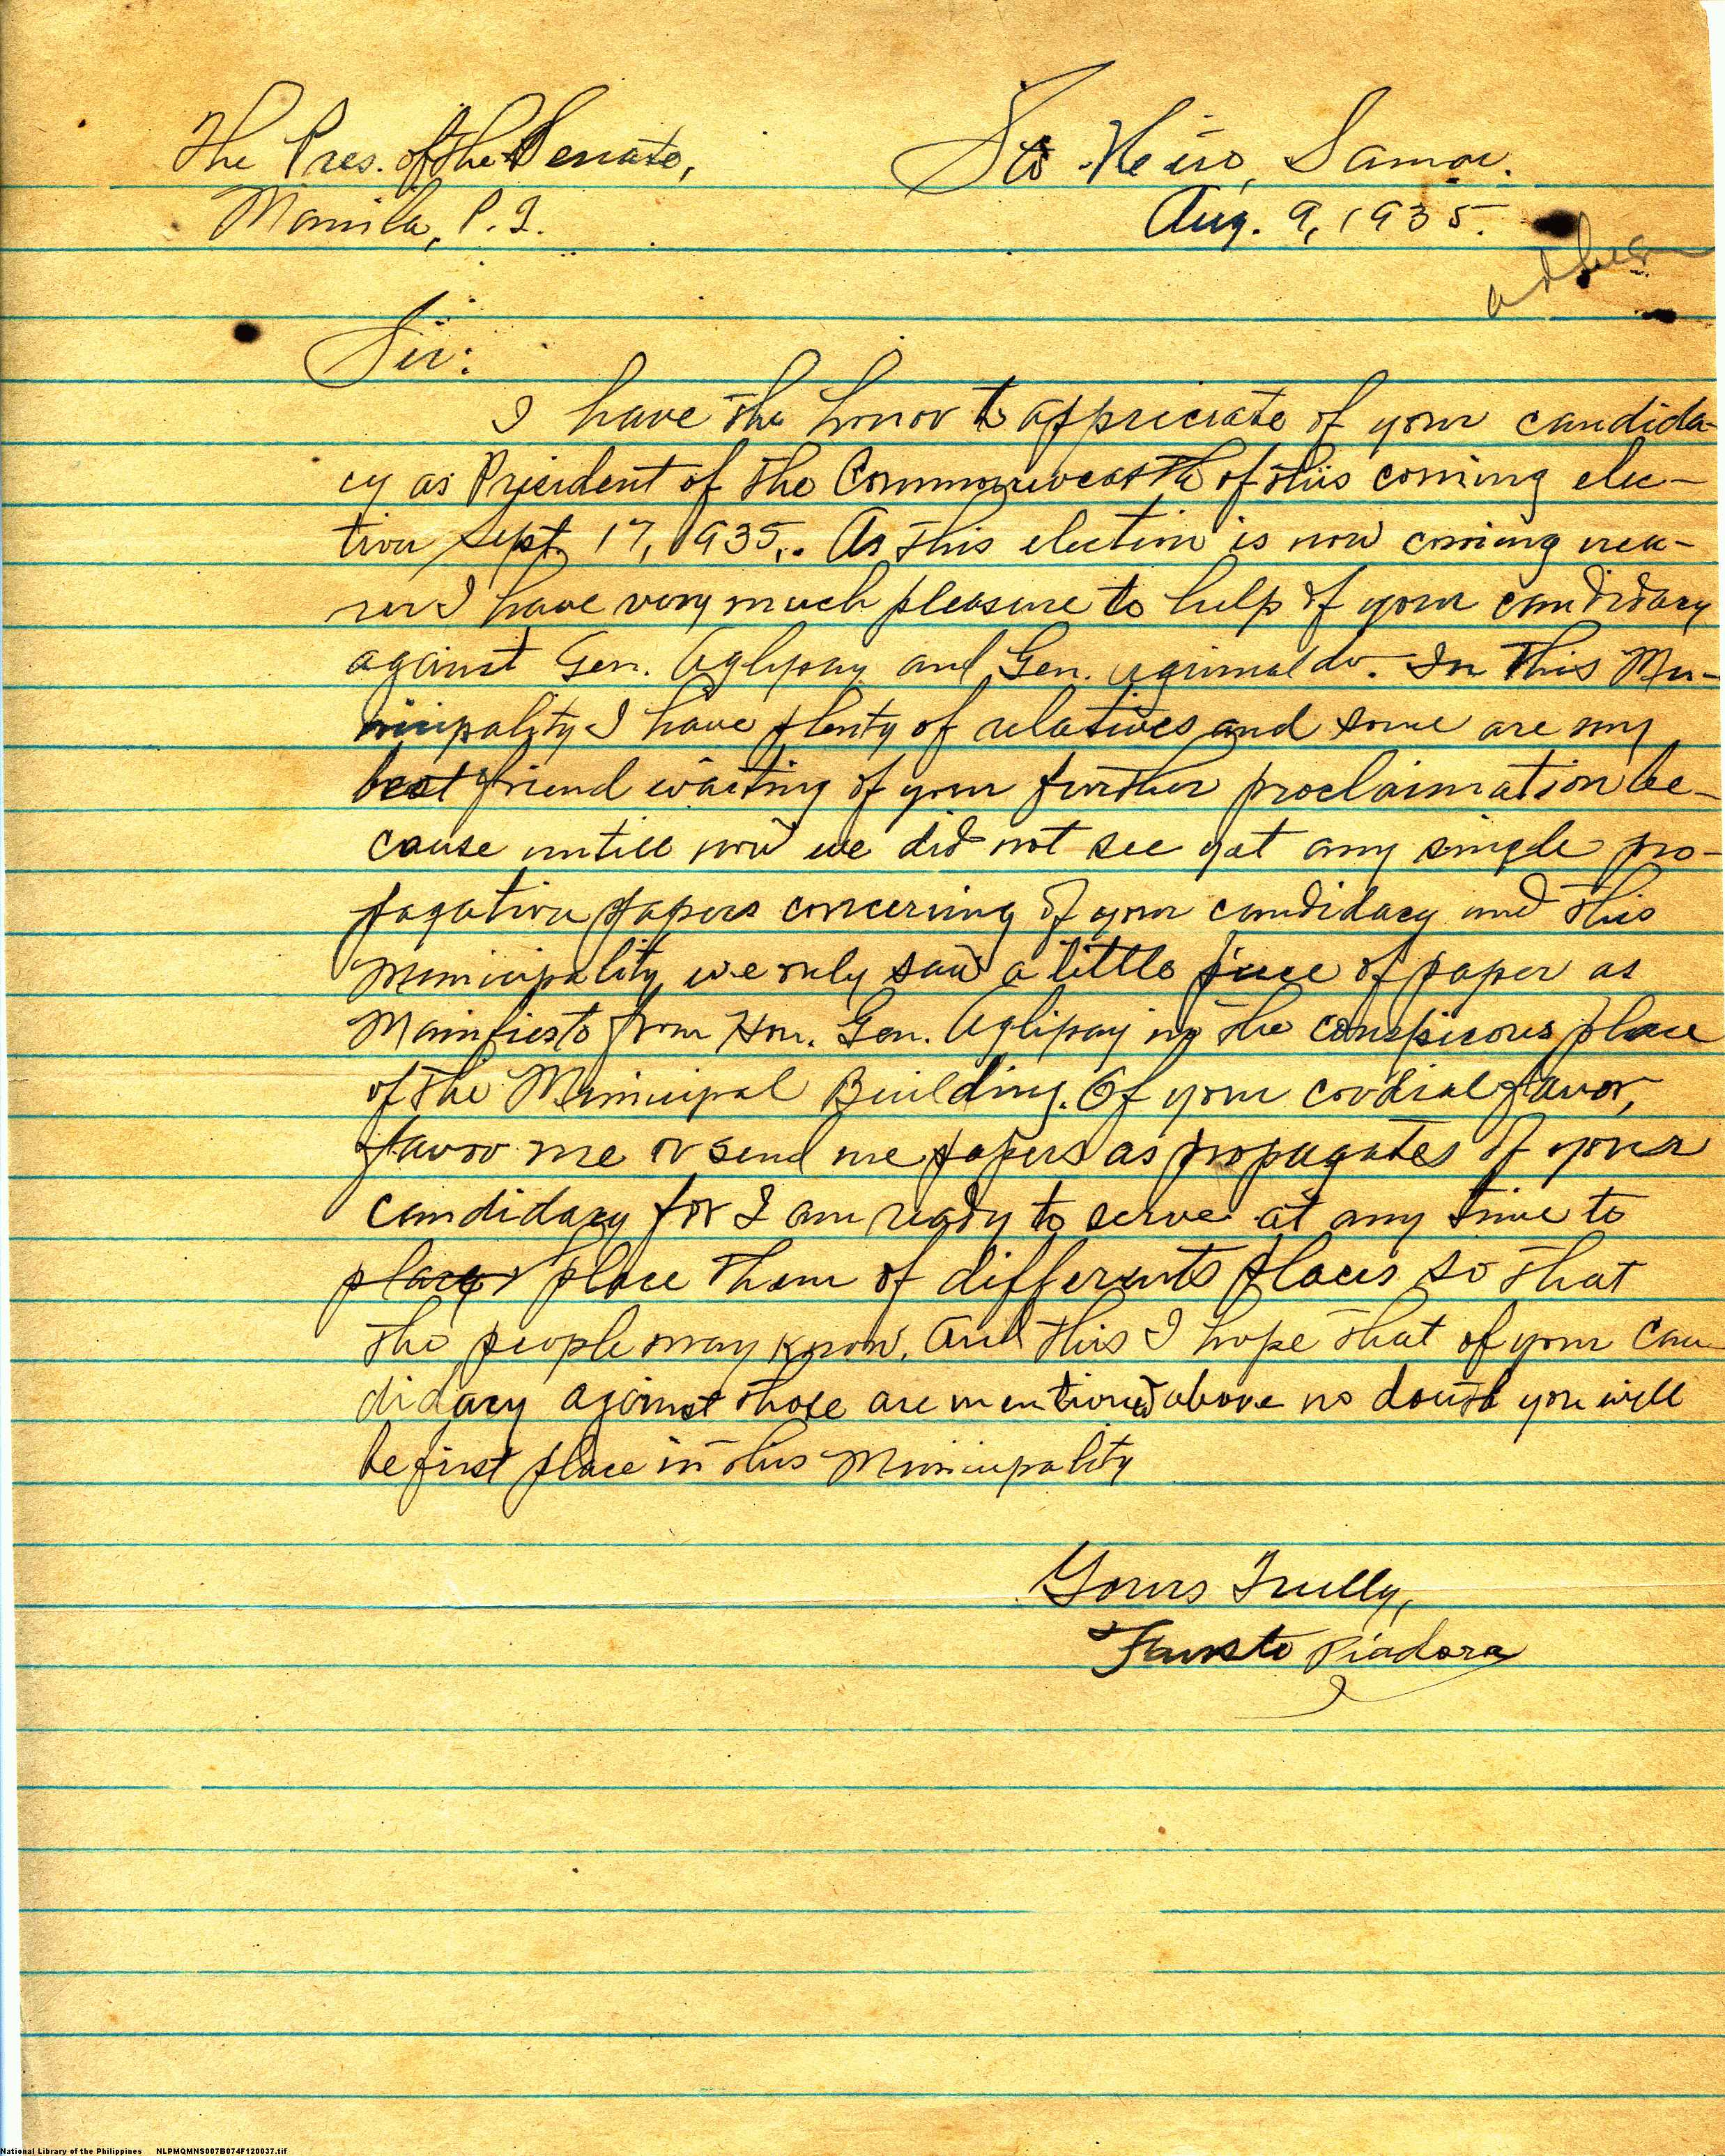 The Pres. of the Senate,
Sto Niño, Samar.
Manila, P. I.
Aug. 9, 1935.
Sir:
I have the honor to appreciate of your candida-
cy as President of the Commonwealth of this coming elec-
tion Sept. 17, 1935. As this election is now coming nea-
rer I have very much pleasure to help of your candidacy
against Gen. Aglipay and Gen. Aguinaldo. In this Mu-
nicipality I have plenty of relatives and some are my
best friend waiting of your further proclaimation be-
cause untill now we did not see yat any single pro-
pagation papers concerning of your candidacy and this
Municipality, we only saw a little piece of paper as
Manifiesto from Hon. Gen. Aglipay in the conspicous place
of the Municipal Building. Of your cordial favor,
favor me or send me papers as propagates of your
candidacy for I am ready to serve at any time to
place place them of differents places so that
the people may know. And this I hope that of your can-
didacy against those are mentioned above no doubt you will
be first place in this Municipality
Yours Trully,
Fausto Piadora
National Library of the Philippines NLPMQMNS007B074F120037.tif